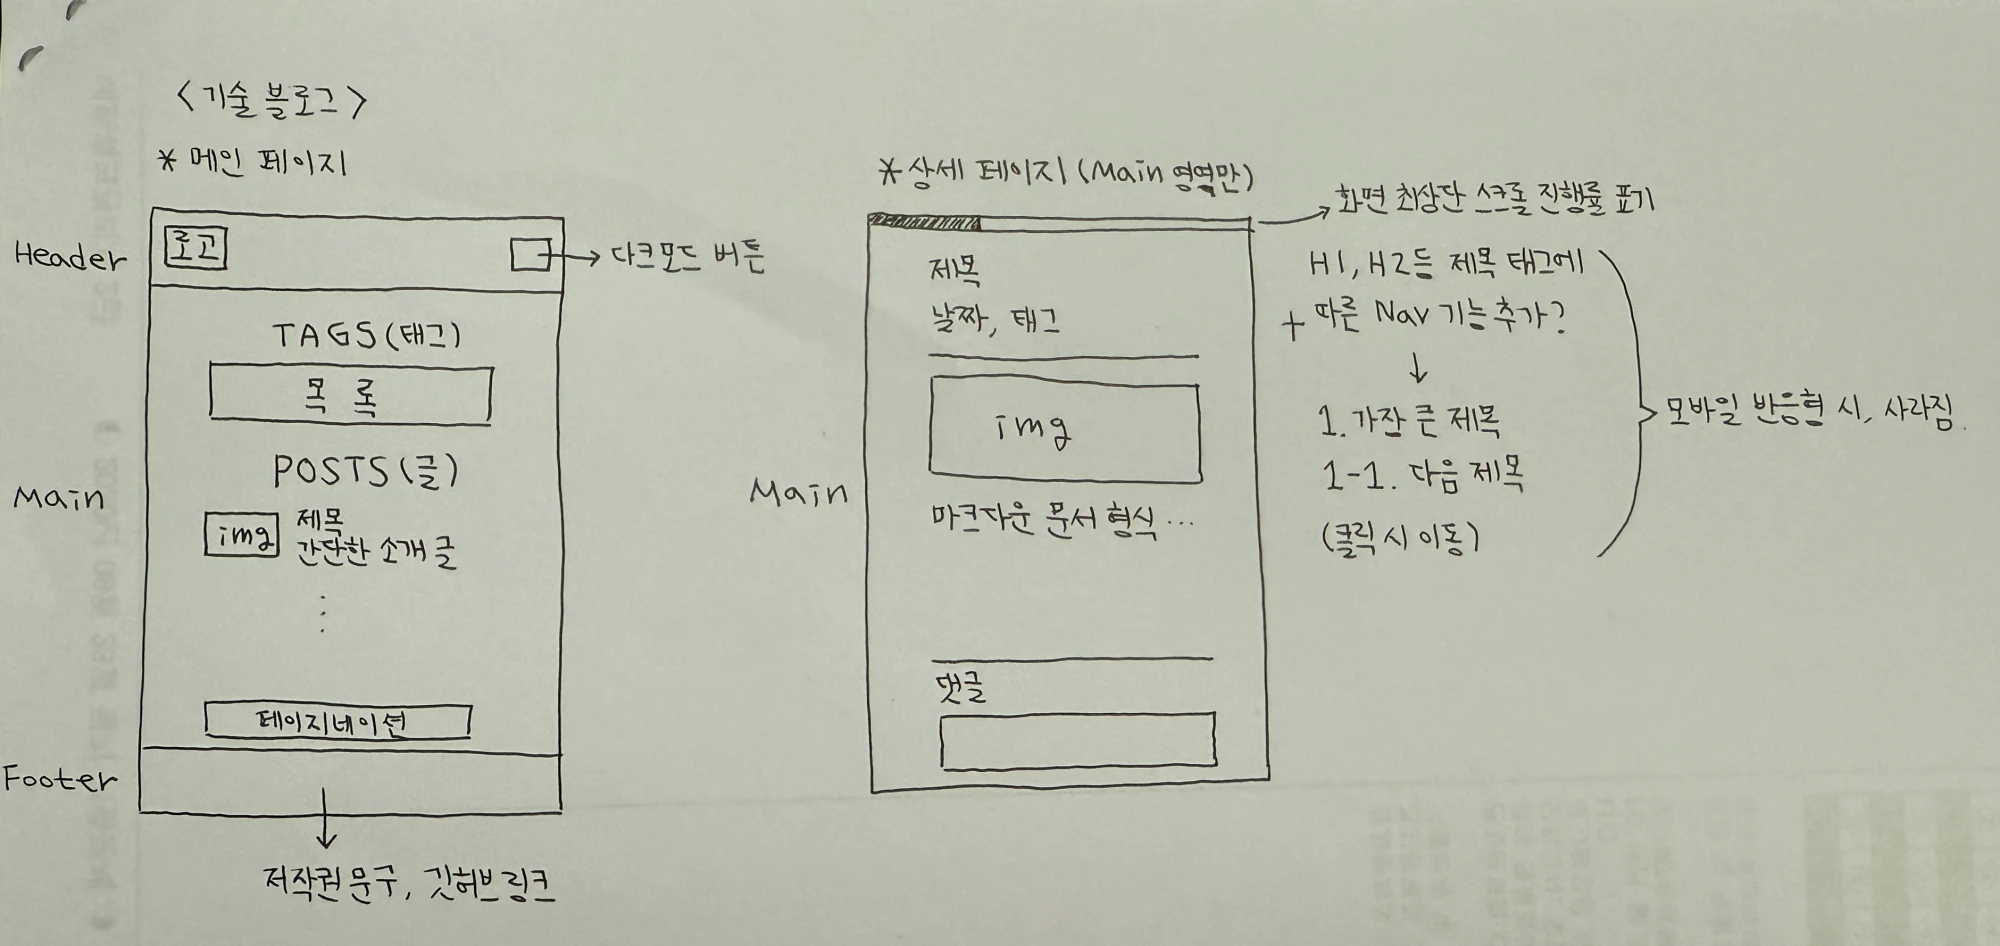 <기술 블로그>
* 메인 페이지
Header
로고
→ 다크모드 버튼
Main
TAGS(태그)
목 록
POSTS(글)
img
제목
간단한 소개 글
⋮
페이지네이션
Footer
저작권 문구, 깃허브 링크
* 상세 페이지 (Main 영역만)
→ 화면 최상단 스크롤 진행률 표기
Main
제목
날짜, 태그
img
마크다운 문서 형식 ...
댓글
H1, H2등 제목 태그에
+ 따른 Nav 기능 추가?
↓
1. 가장 큰 제목
1-1. 다음 제목
(클릭 시 이동)
모바일 반응형 시, 사라짐.